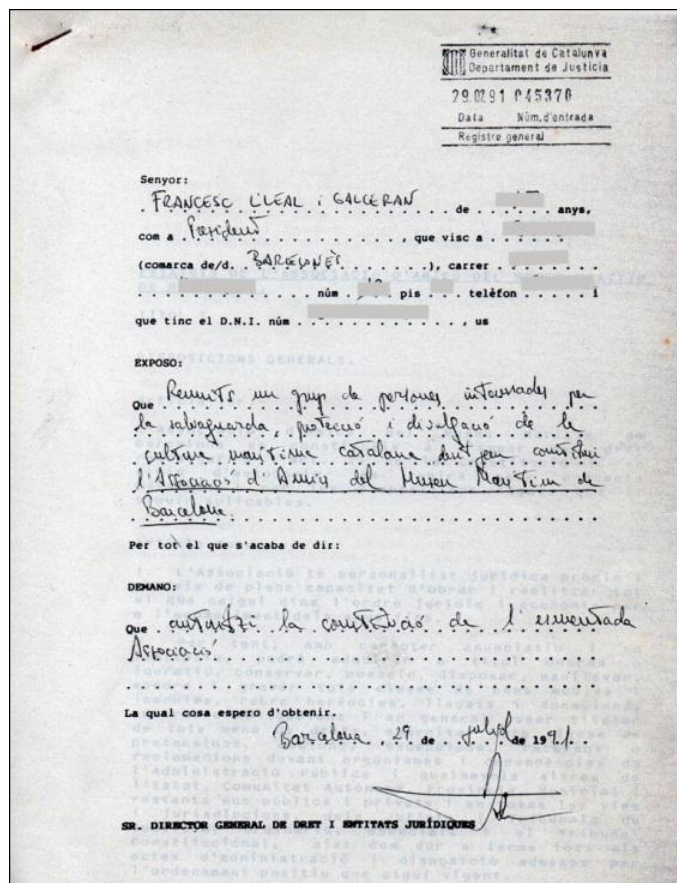 Generalitat de Catalunya
Departament de Justícia
29.07.91 045370
Data Núm.d'entrada
Registre general
Senyor:
FRANCESC LLEAL i GALCERAN de anys,
com a President, que visc a
(comarca de/d. BARCELONÈS), carrer
núm pis telèfon i
que tinc el D.N.I. núm , us
EXPOSO:
Que Reunits un grup de persones interessades per
la salvaguarda, protecció i divulgació de la
cultura marítima catalana constituir
l'Associació d'Amics del Museu Marítim de
Barcelona.
Per tot el que s'acaba de dir:
DEMANO:
Que autoritzi la constitució de l'esmentada
Associació
La qual cosa espero d'obtenir.
Barcelona 29 de juliol de 1991.
SR. DIRECTOR GENERAL DE DRET I ENTITATS JURÍDIQUES